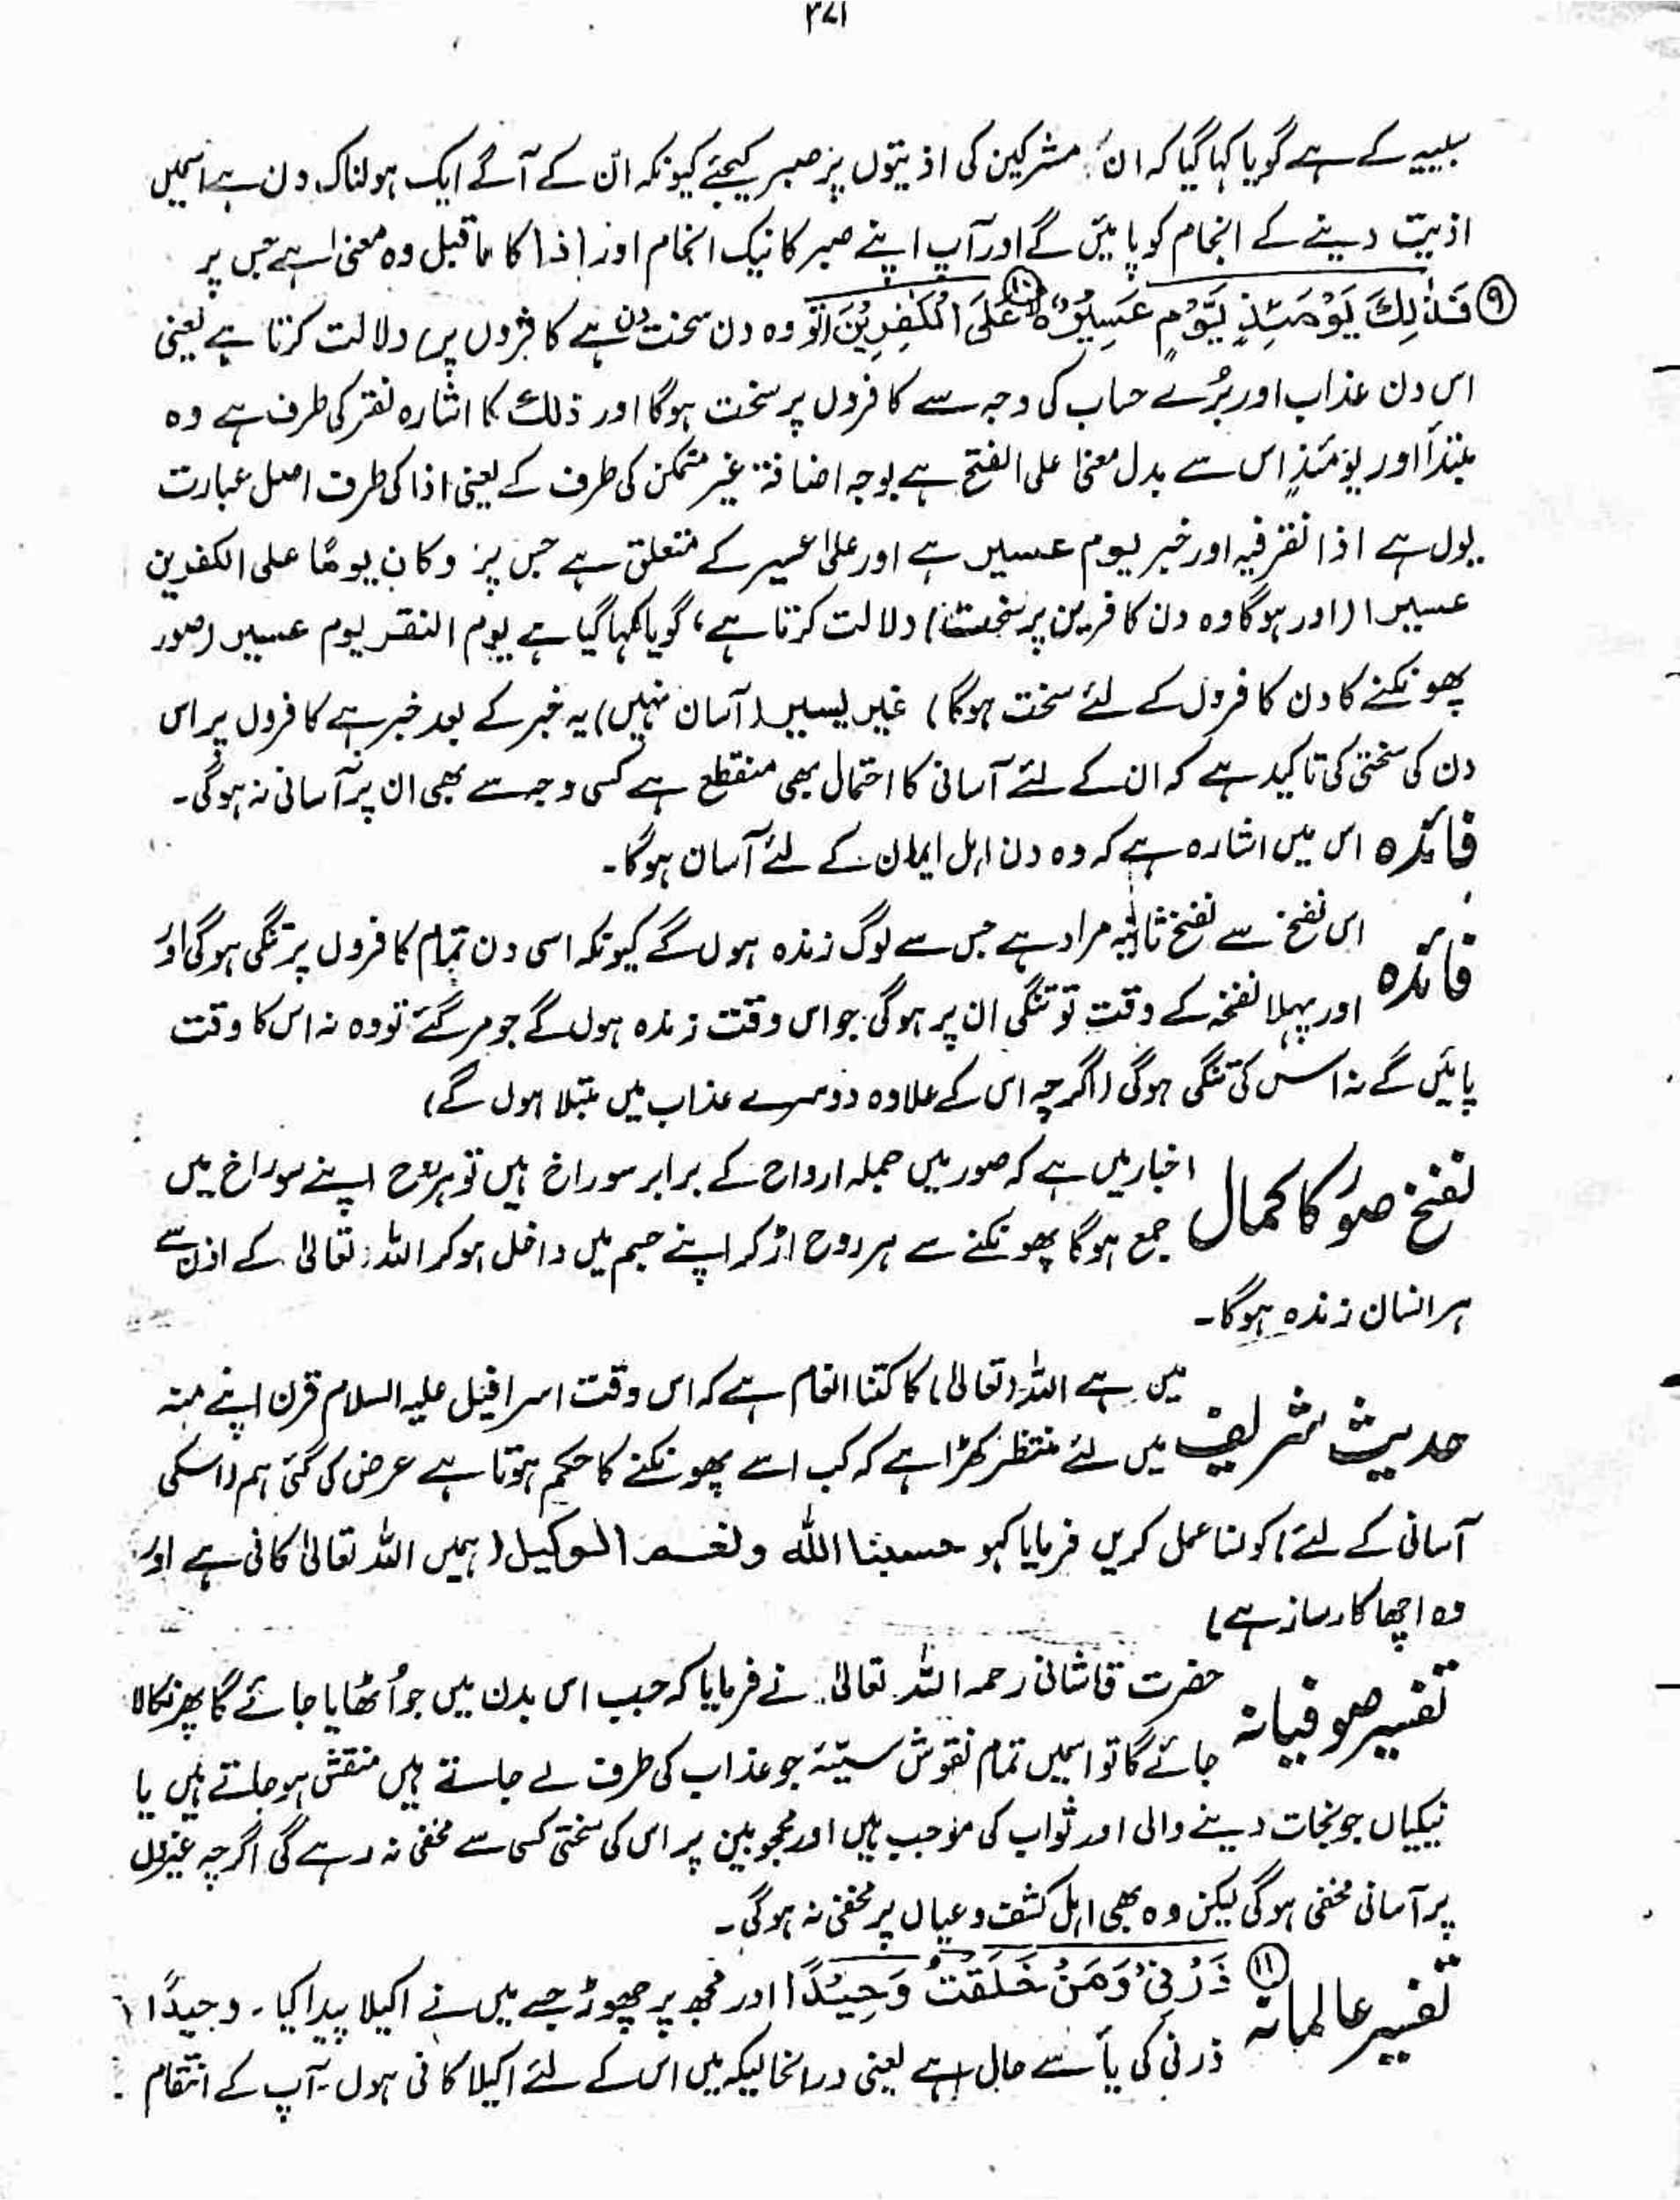 ۳۷۱
سببیہ کے ہے گویا کہا گیا کہ ان مشرکین کی اذیتوں پر صبر کیجئے کیونکہ ان کے آگے ایک ہولناک دن ہے اسمیں
اذیت دینے کے انجام کو پائیں گے اور آپ اپنے صبر کا نیک انجام اور اذا کا ماقبل وہ معنی ہے جس پر
⑨ فَذٰلِكَ يَوْمَئِذٍ يَّوْمٌ عَسِيْرٌ ⑩ عَلَى الْكٰفِرِيْنَ (تو وہ دن سخت دن ہے کافروں پر) دلالت کرتا ہے یعنی
اس دن عذاب اور برُے حساب کی وجہ سے کافروں پر سخت ہوگا اور ذلك کا اشارہ نقر کی طرف ہے وہ
مبتدأ اور یومئذٍ اس سے بدل معنیٰ علی الفتح ہے بوجہ اضافۃ غیر متمکن کی طرف کے یعنی اذا کی طرف اصل عبارت
یوں ہے اذا نقر فیہ اور خبر یوم عسیر ہے اور علیٰ عسیر کے متعلق ہے جس پر وکان یومًا علی الکٰفرین
عسیرا (اور ہوگا وہ دن کافرین پر سخت) دلالت کرتا ہے، گویا کہا گیا ہے یوم النقر یوم عسیر (صور
پھونکنے کا دن کافروں کے لئے سخت ہوگا) غیر یسیر (آسان نہیں) یہ خبر کے بعد خبر ہے کافروں پر اس
دن کی سختی کی تاکید ہے کہ ان کے لئے آسانی کا احتمال بھی منقطع ہے کسی وجہ سے بھی ان پر آسانی نہ ہوگی۔
فائدہ اس میں اشارہ ہے کہ وہ دن اہل ایمان کے لئے آسان ہوگا۔
فائدہ اس نفخ سے نفخ ثانیہ مراد ہے جس سے لوگ زندہ ہوں گے کیونکہ اسی دن تمام کافروں پر تنگی ہوگی اور
اور پہلا نفخہ کے وقت تو تنگی ان پر ہوگی جو اس وقت زندہ ہوں گے جو مرگئے تو وہ نہ اس کا وقت
پائیں گے نہ اسس کی تنگی ہوگی (اگرچہ اس کے علاوہ دوسرے عذاب میں مبتلا ہوں گے)
نفخ صور کا کمال اخبار میں ہے کہ صور میں جملہ ارواح کے برابر سوراخ ہیں تو ہر روح اپنے سوراخ میں
جمع ہوگا پھونکنے سے ہر روح اڑ کر اپنے جسم میں داخل ہو کر اللہ تعالیٰ کے اذن سے
ہر انسان زندہ ہوگا۔
حدیث شریف میں ہے اللہ (تعالیٰ) کا کتنا انعام ہے کہ اس وقت اسرافیل علیہ السلام قرن اپنے منہ
میں لئے منتظر کھڑا ہے کہ کب اسے پھونکنے کا حکم ہوتا ہے عرض کی گئی ہم (اسکی
آسانی کے لئے) کونسا عمل کریں فرمایا کہو حسبنا اللہ ونعم الوکیل (ہمیں اللہ تعالیٰ کافی ہے اور
وہ اچھا کارساز ہے)
تفسیر صوفیانہ حضرت قاشانی رحمہ اللہ تعالیٰ نے فرمایا کہ جب اس بدن میں جو اُٹھایا جائے گا پھر نکالا
جائے گا تو اسمیں تمام نقوش سیّئہ جو عذاب کی طرف لے جاتے ہیں منقش ہو جاتے ہیں یا
نیکیاں جو نجات دینے والی اور ثواب کی موجب ہیں اور محجوبین پر اس کی سختی کسی سے مخفی نہ رہے گی اگرچہ غیروں
پر آسانی مخفی ہوگی لیکن وہ بھی اہل کشف و عیاں پر مخفی نہ ہوگی۔
تفسیر عالمانہ ⑪ ذَرْنِيْ وَمَنْ خَلَقْتُ وَحِيْدًا اور مجھ پر چھوڑ جسے میں نے اکیلا پیدا کیا۔ وحیدًا
ذرنی کی یأ سے حال ہے یعنی درانحالیکہ میں اس کے لئے اکیلا کافی ہوں۔ آپ کے انتقام